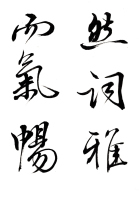 然词雅
而氣暢